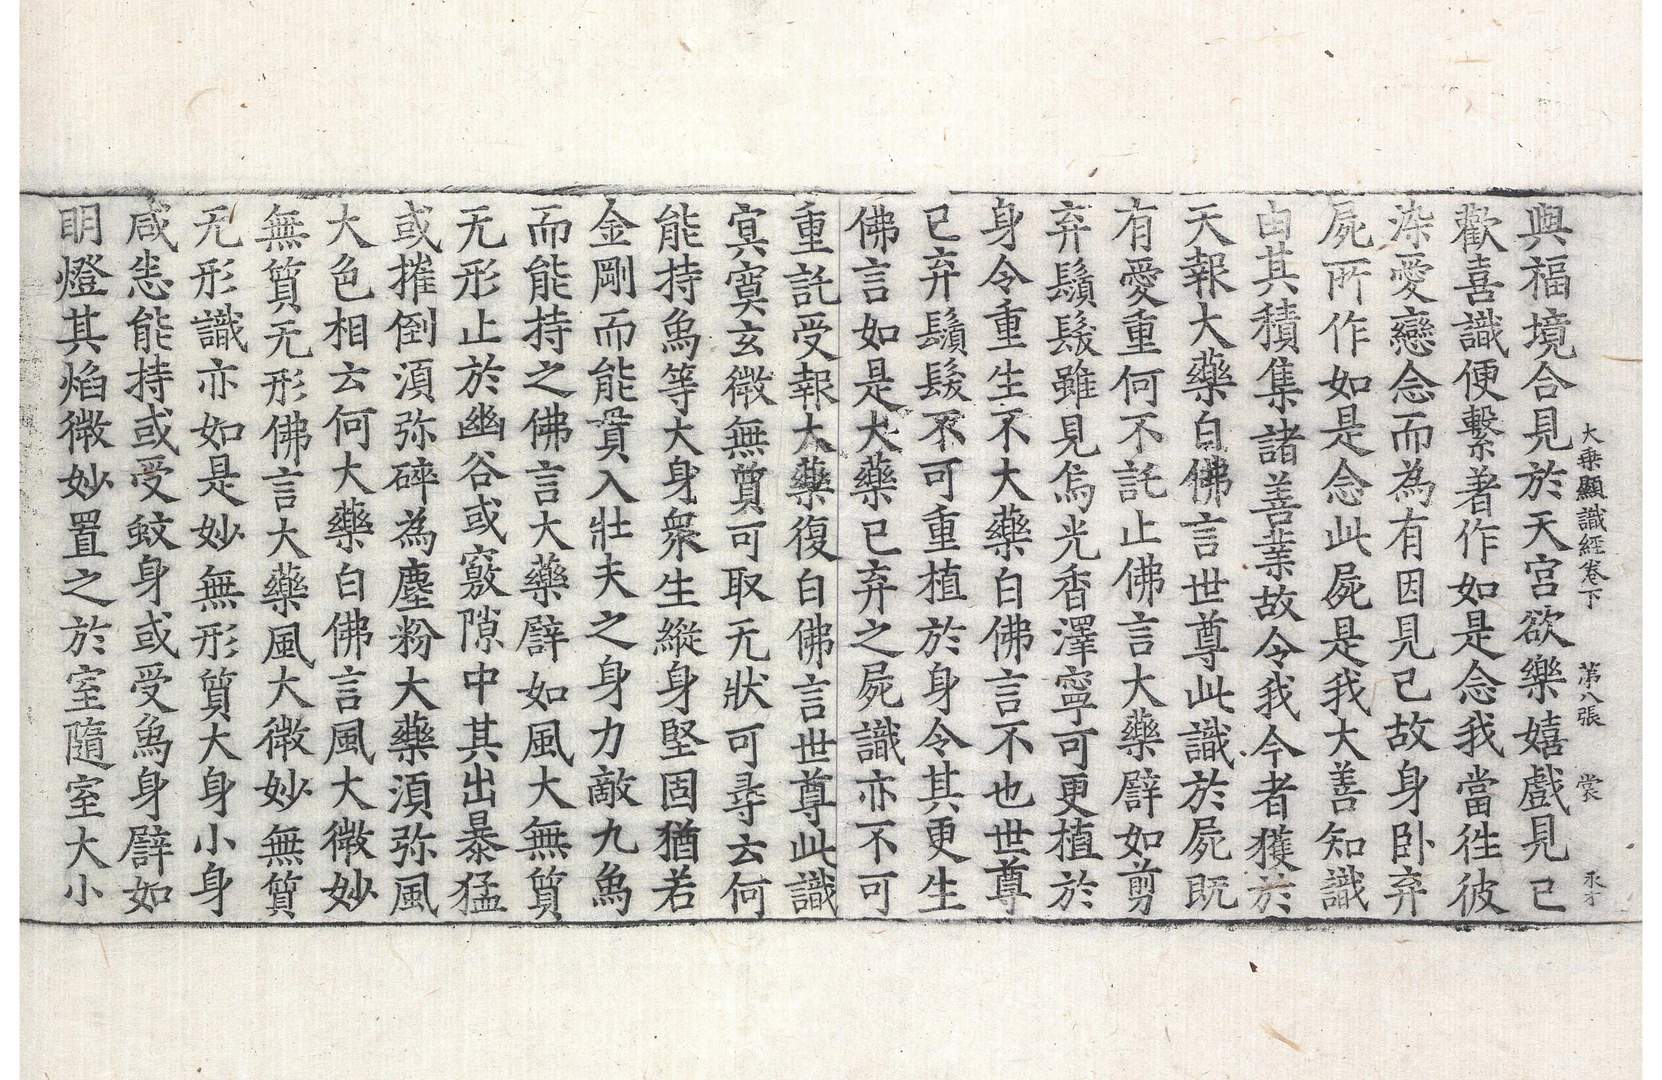 大乗顯識經卷下　第八張　裳
與福境合見於天宮欲樂嬉戲見已
歡喜識便繫著作如是念我當徃彼
染愛戀念而為有因見己故身卧弃
屍所作如是念此屍是我大善知識
由其積集諸善業故令我今者獲於
天報大藥白佛言世尊此識於屍既
有愛重何不託止佛言大藥譬如剪
弃鬚髮雖見烏光香澤寧可更植於
身令重生不大藥白佛言不也世尊
已弃鬚髮不可重植於身令其更生
佛言如是大藥已弃之屍識亦不可
重託受報大藥復白佛言世尊此識
寘寞玄微無質可取无狀可尋云何
能持烏等大身衆生縱身堅固猶若
金剛而能貫入壯夫之身力敵九烏
而能持之佛言大藥譬如風大無質
无形止於幽谷或竅隙中其出暴猛
或摧倒湏弥碎為塵粉大藥湏弥風
大色相云何大藥白佛言風大微妙
無質无形佛言大藥風大微妙無質
无形識亦如是妙無形質大身小身
咸悉能持或受蚊身或受烏身譬如
明燈其焰微妙置之於室隨室大小